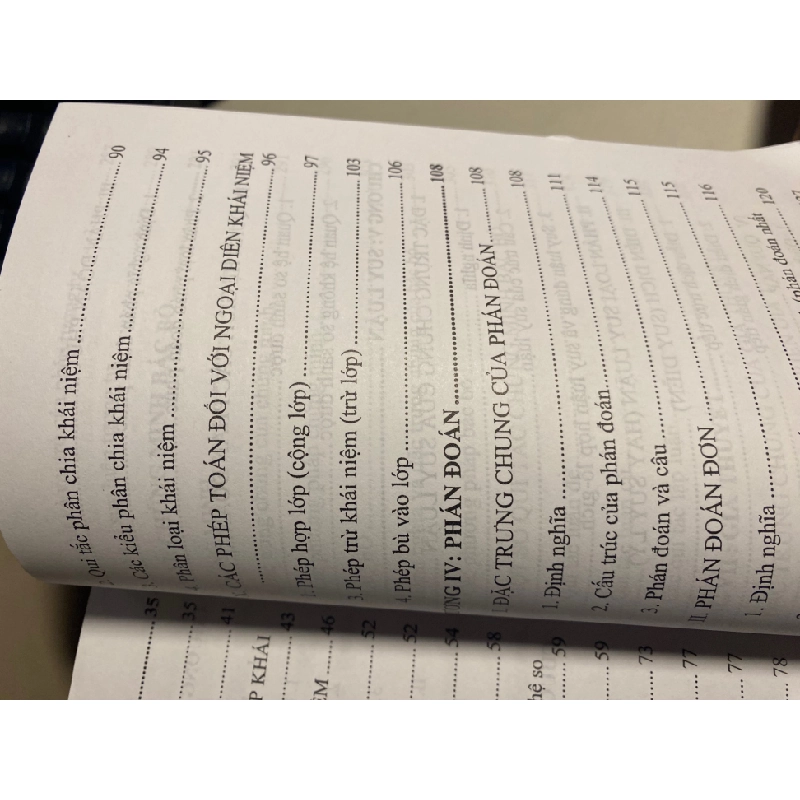 Qui tắc phân chia khái niệm ........ 90
3. Các kiểu phân chia khái niệm ........ 94
4. Phân loại khái niệm ........ 95
CÁC PHÉP TOÁN ĐỐI VỚI NGOẠI DIÊN KHÁI NIỆM
........ 96
1. Phép hợp lớp (cộng lớp) ........ 97
3. Phép trừ khái niệm (trừ lớp) ........ 103
4. Phép bù vào lớp ........ 106
ƯƠNG IV: PHÁN ĐOÁN ........ 108
I. ĐẶC TRƯNG CHUNG CỦA PHÁN ĐOÁN ........ 108
1. Định nghĩa ........ 108
2. Cấu trúc của phán đoán ........ 111
3. Phán đoán và câu ........ 114
II. PHÁN ĐOÁN ĐƠN ........ 115
1. Định nghĩa ........ 115
116
120
(phán đoán nhất
35
35
41
P KHÁI
43
ỆM ........ 46
52
52
54
58
hệ so
59
59
73
77
77
78